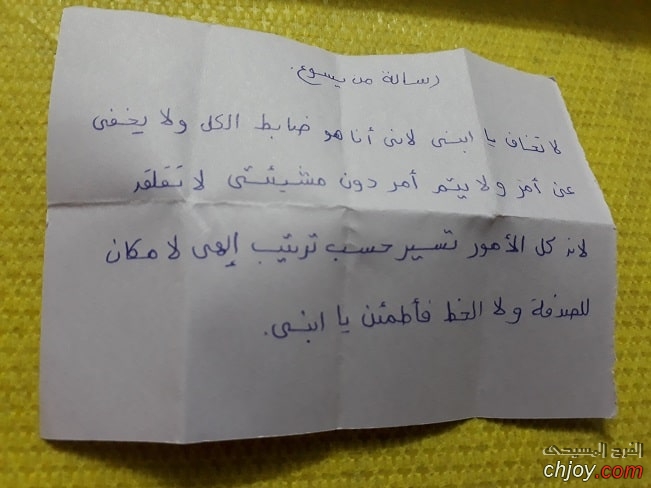 رسالة من يسوع.
لا تخاف يا ابنى لانى أنا هو ضابط الكل ولا يخفى
عنى أمر ولا يتم أمر دون مشيئتى لا تقلق
لان كل الأمور تسير حسب ترتيب إلهى لا مكان
للصدفة ولا الحظ فأطمئن يا ابنى.
الفرح المسيحى
chjoy.com